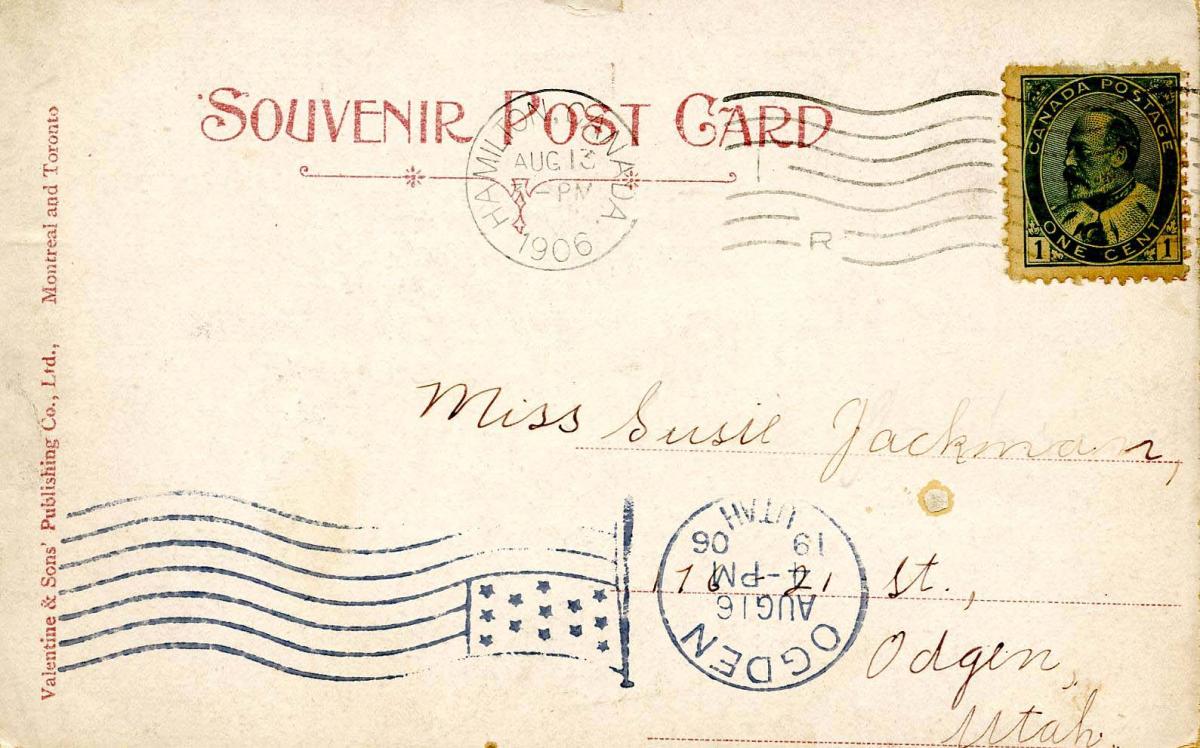 SOUVENIR POST CARD
HAMILTON. CANADA.
AUG 13
-PM
1906
R
CANADA POSTAGE
1 ONE CENT 1
Valentine & Sons' Publishing Co., Ltd., Montreal and Toronto
Miss Susie Jackman,
176 - 21 St.,
Odgen,
Utah.
OGDEN
AUG 16
4-PM
19 06
UTAH